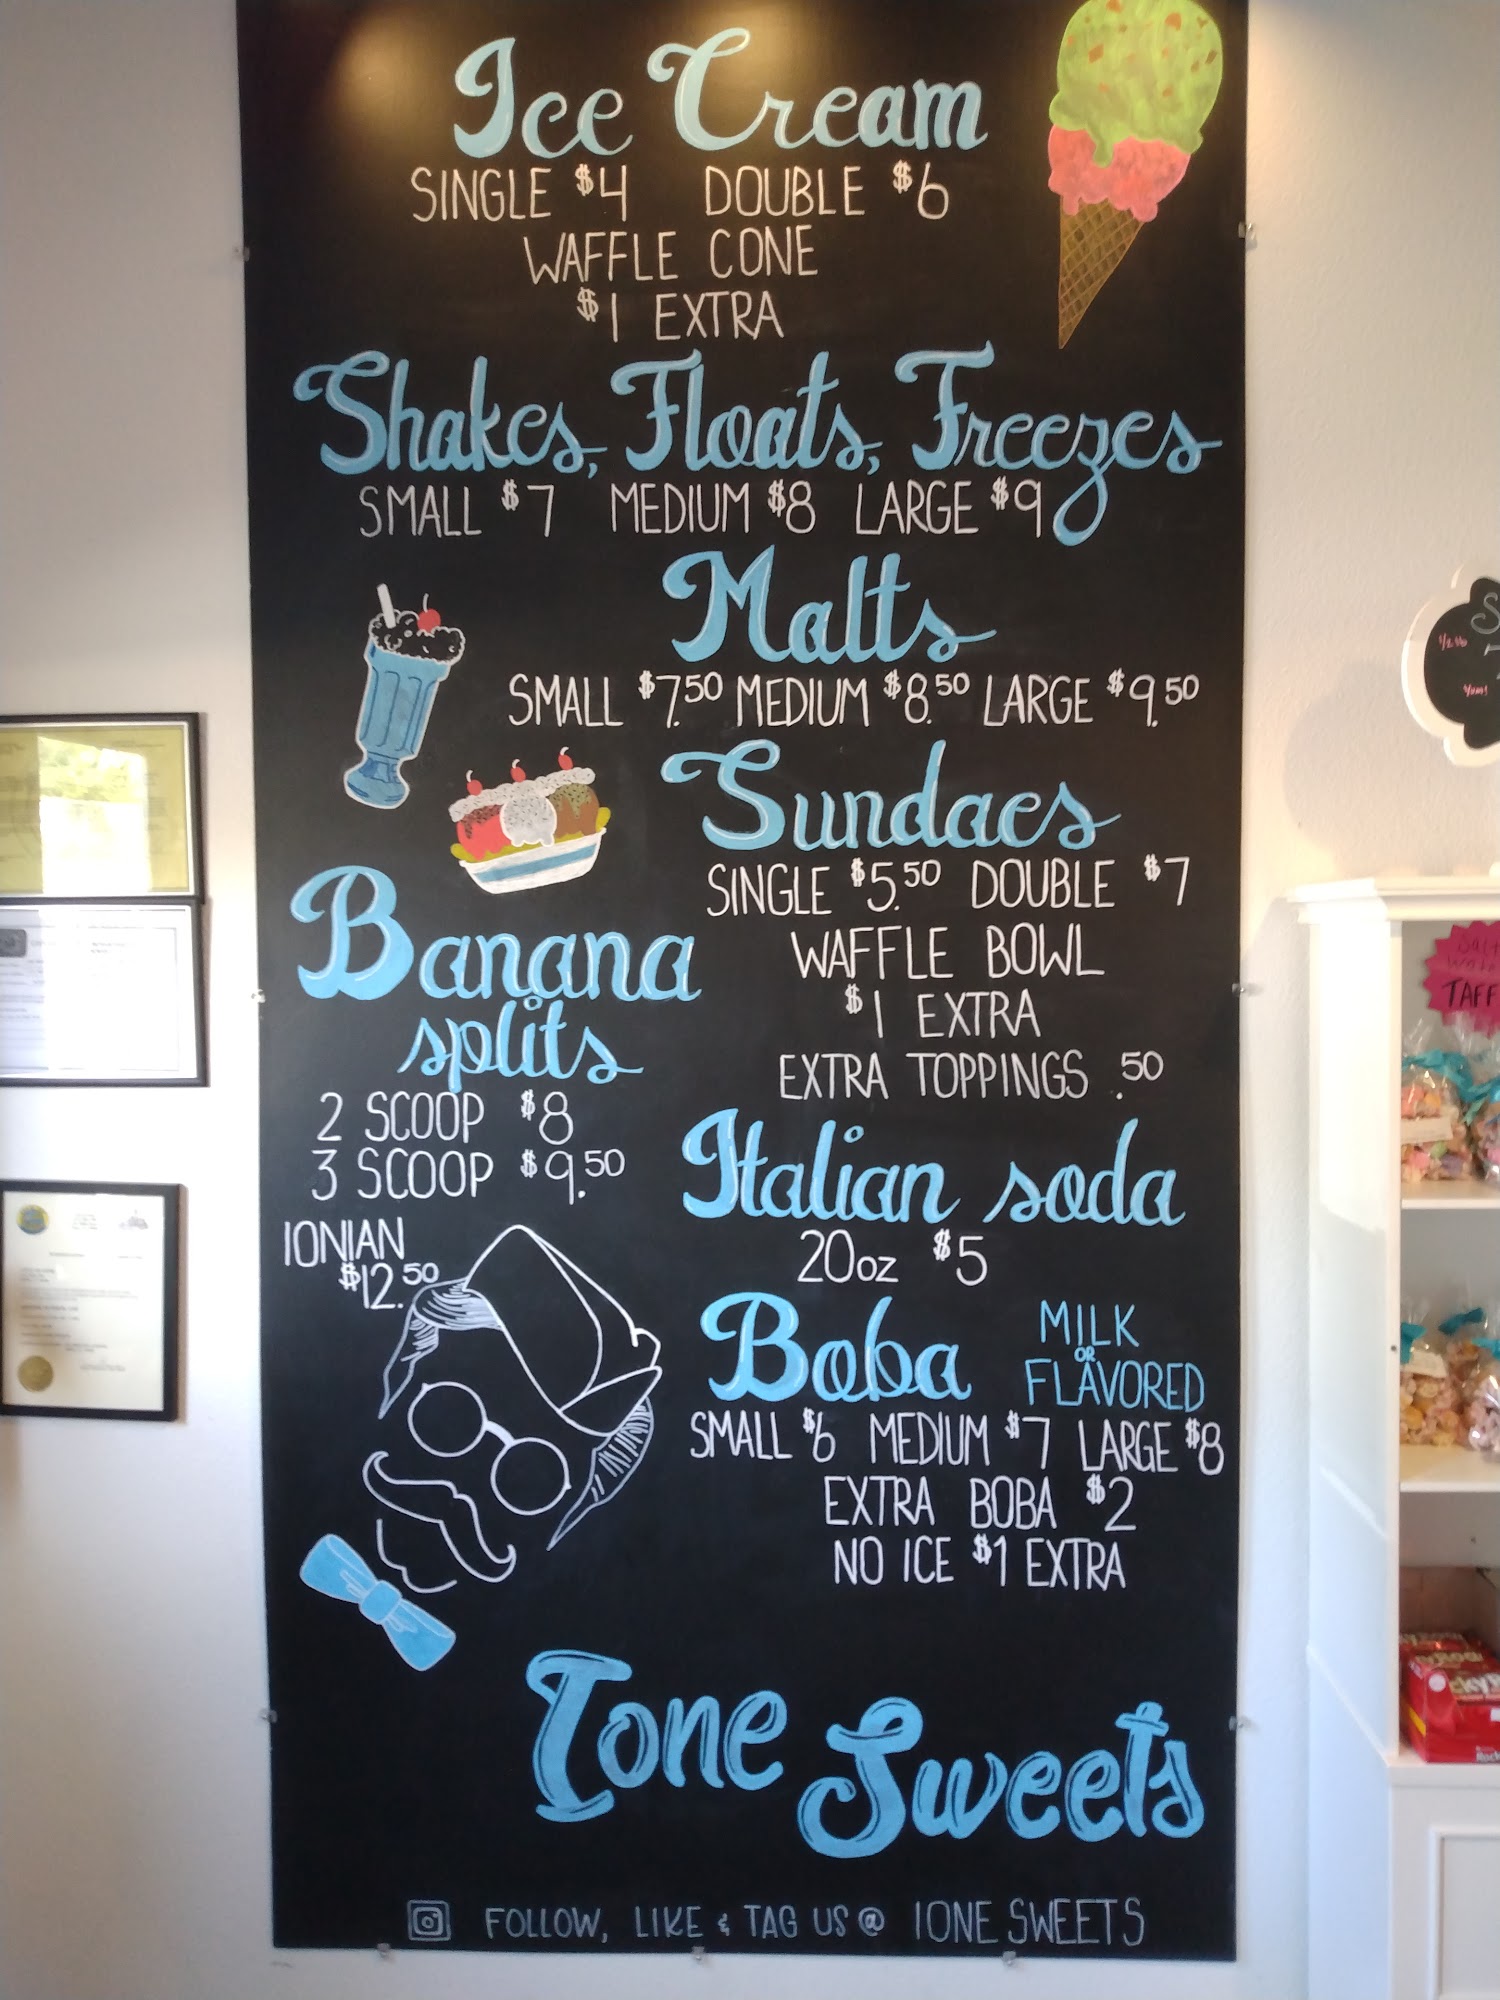 Ice Cream
SINGLE $4 DOUBLE $6
WAFFLE CONE
$1 EXTRA
Shakes, Floats, Freezes
SMALL $7 MEDIUM $8 LARGE $9
Malts
SMALL $7.50 MEDIUM $8.50 LARGE $9.50
Sundaes
SINGLE $5.50 DOUBLE $7
WAFFLE BOWL
$1 EXTRA
EXTRA TOPPINGS .50
Banana
splits
2 SCOOP $8
3 SCOOP $9.50
IONIAN
$12.50
Italian soda
20oz $5
Boba
MILK
OR
FLAVORED
SMALL $6 MEDIUM $7 LARGE $8
EXTRA BOBA $2
NO ICE $1 EXTRA
Ione Sweets
FOLLOW, LIKE & TAG US @ IONE SWEETS
TAFF